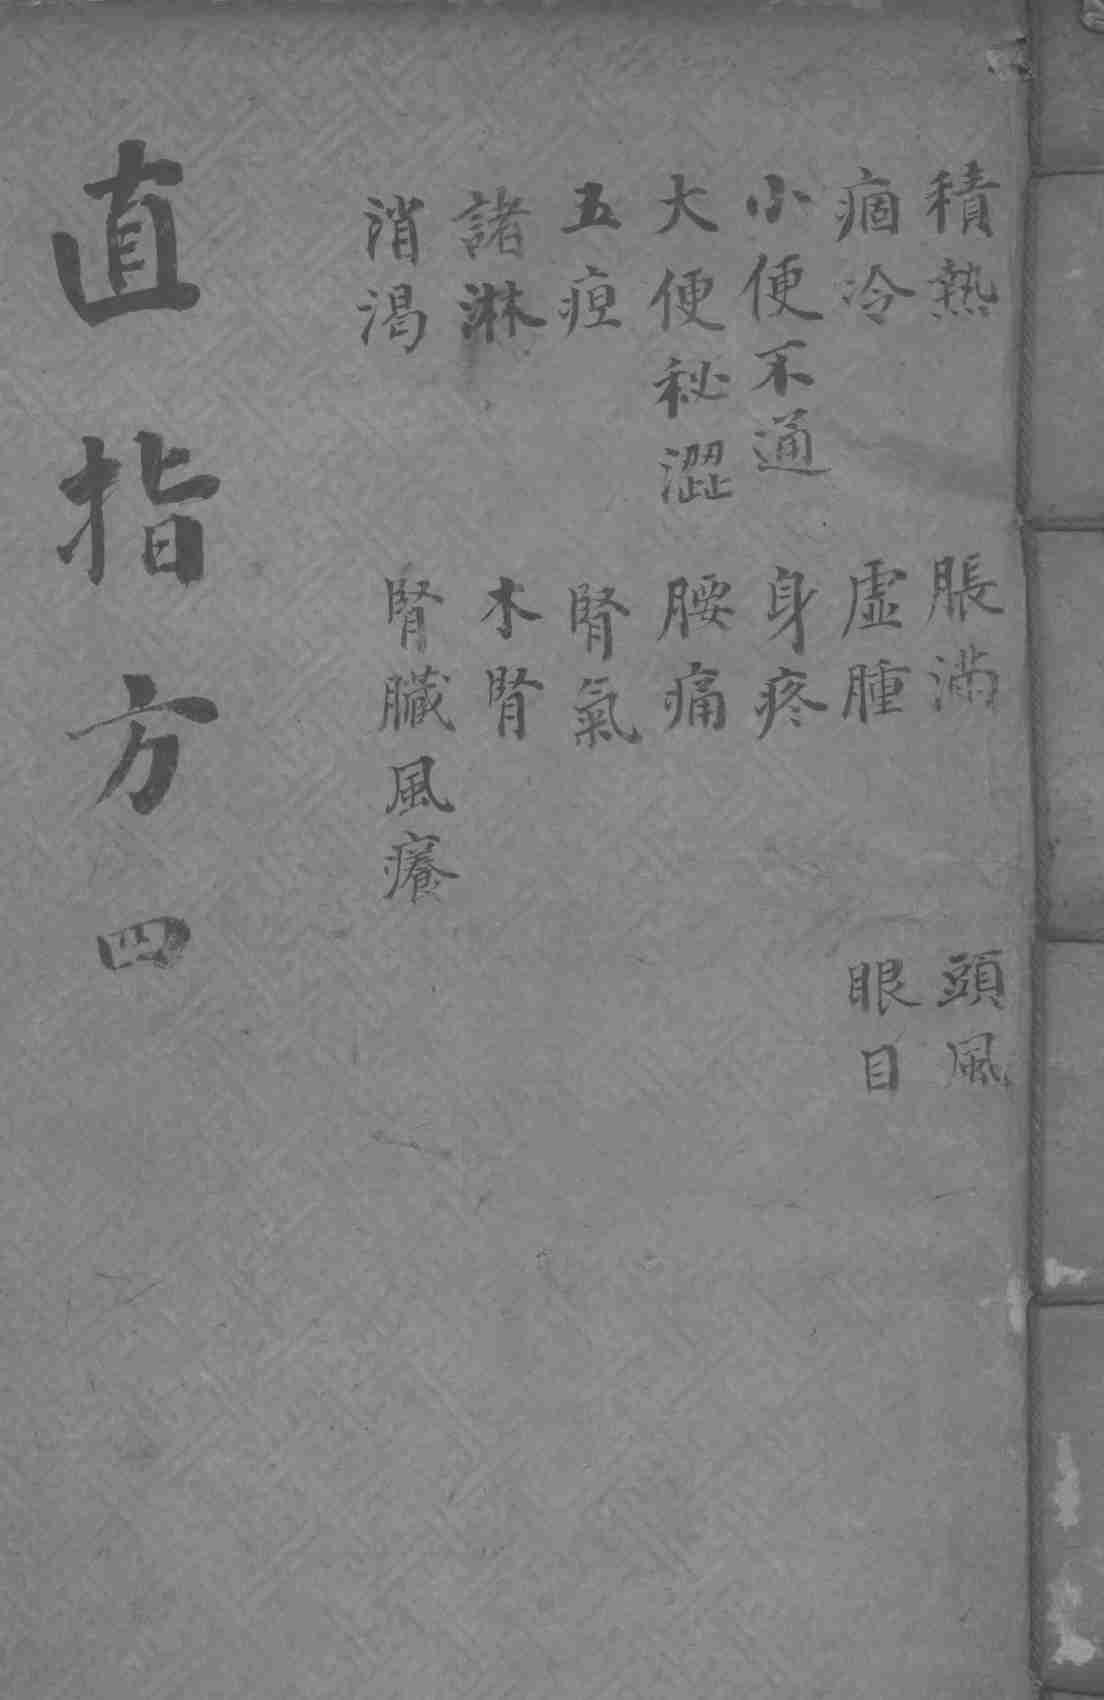 積熱
痼冷
小便不通
大便秘澀
五疸
諸淋
消渴
脹滿
虛腫
身疼
腰痛
腎氣
木腎
腎臟風癢
頭風
眼目
直指方 四